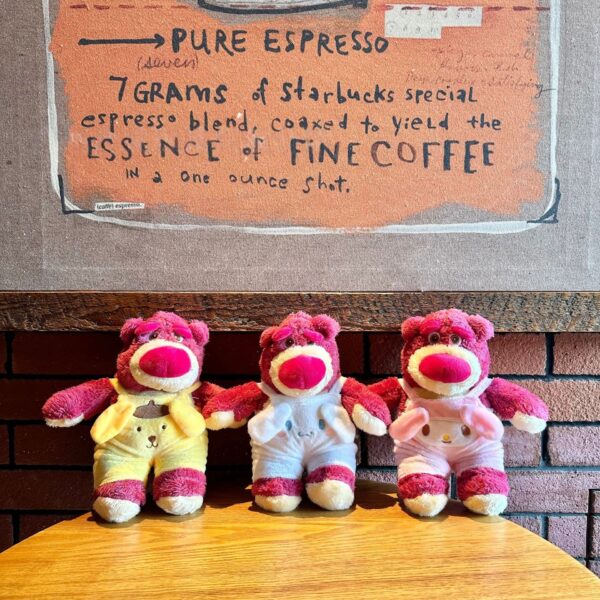 PURE ESPRESSO
(seven)
7 GRAMS of Starbucks special
espresso blend, coaxed to yield the
ESSENCE of FINE COFFEE
IN a one ounce shot.
(caffè espresso.